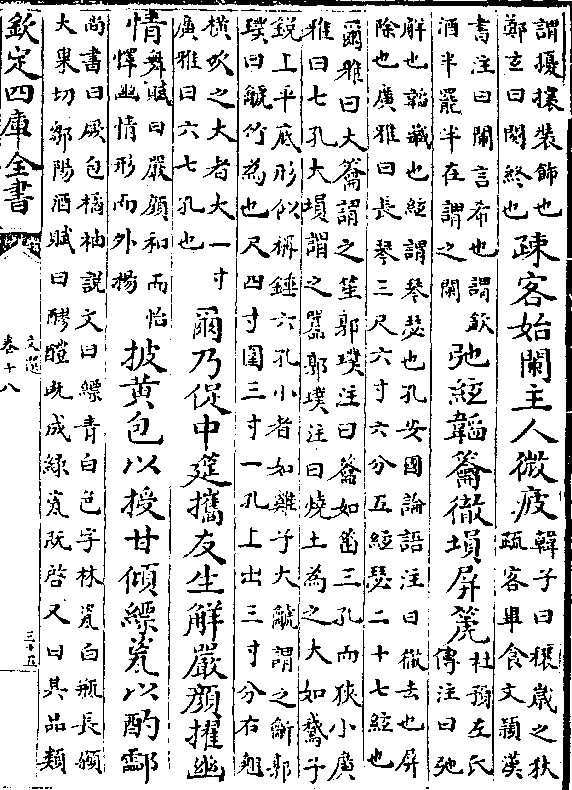 謂擾攘裝飾也
鄭玄曰闋終也
疎客始闌主人微疲
韓子曰穰歲之秋
疏客畢食文頴漢
書注曰闌言希也謂飲
酒半罷半在謂之闌
弛絃韜籥徹塤屏箎
杜預左氏
傳注曰弛
解也韜藏也絃謂琴瑟也孔安國論語注曰徹去也屏
除也廣雅曰長琴三尺六寸六分五絃瑟二十七絃也
爾雅曰大籥謂之笙郭璞注曰籥如笛三孔而狹小廣
雅曰七孔大塤謂之嘂郭璞注曰燒土為之大如鵞子
鋭上平底形似稱錘六孔小者如雞子大䶵謂之䶳郭
璞曰䶵竹為也尺四寸圍三寸一孔上出三寸分右翹
横吹之大者大一寸
廣雅曰六七孔也
爾乃促中筵攜友生解嚴顔擢幽
情
舞賦曰嚴顔和而怡
懌幽情形而外揚
披黄包以授甘傾縹瓷以酌酃
尚書曰厥包橘柚説文曰縹青白色字林瓷白瓶長
大果切鄒陽酒賦曰醪醴既成緑瓷既啓又曰其品類
欽定四庫全書
文選
卷十八
三十五